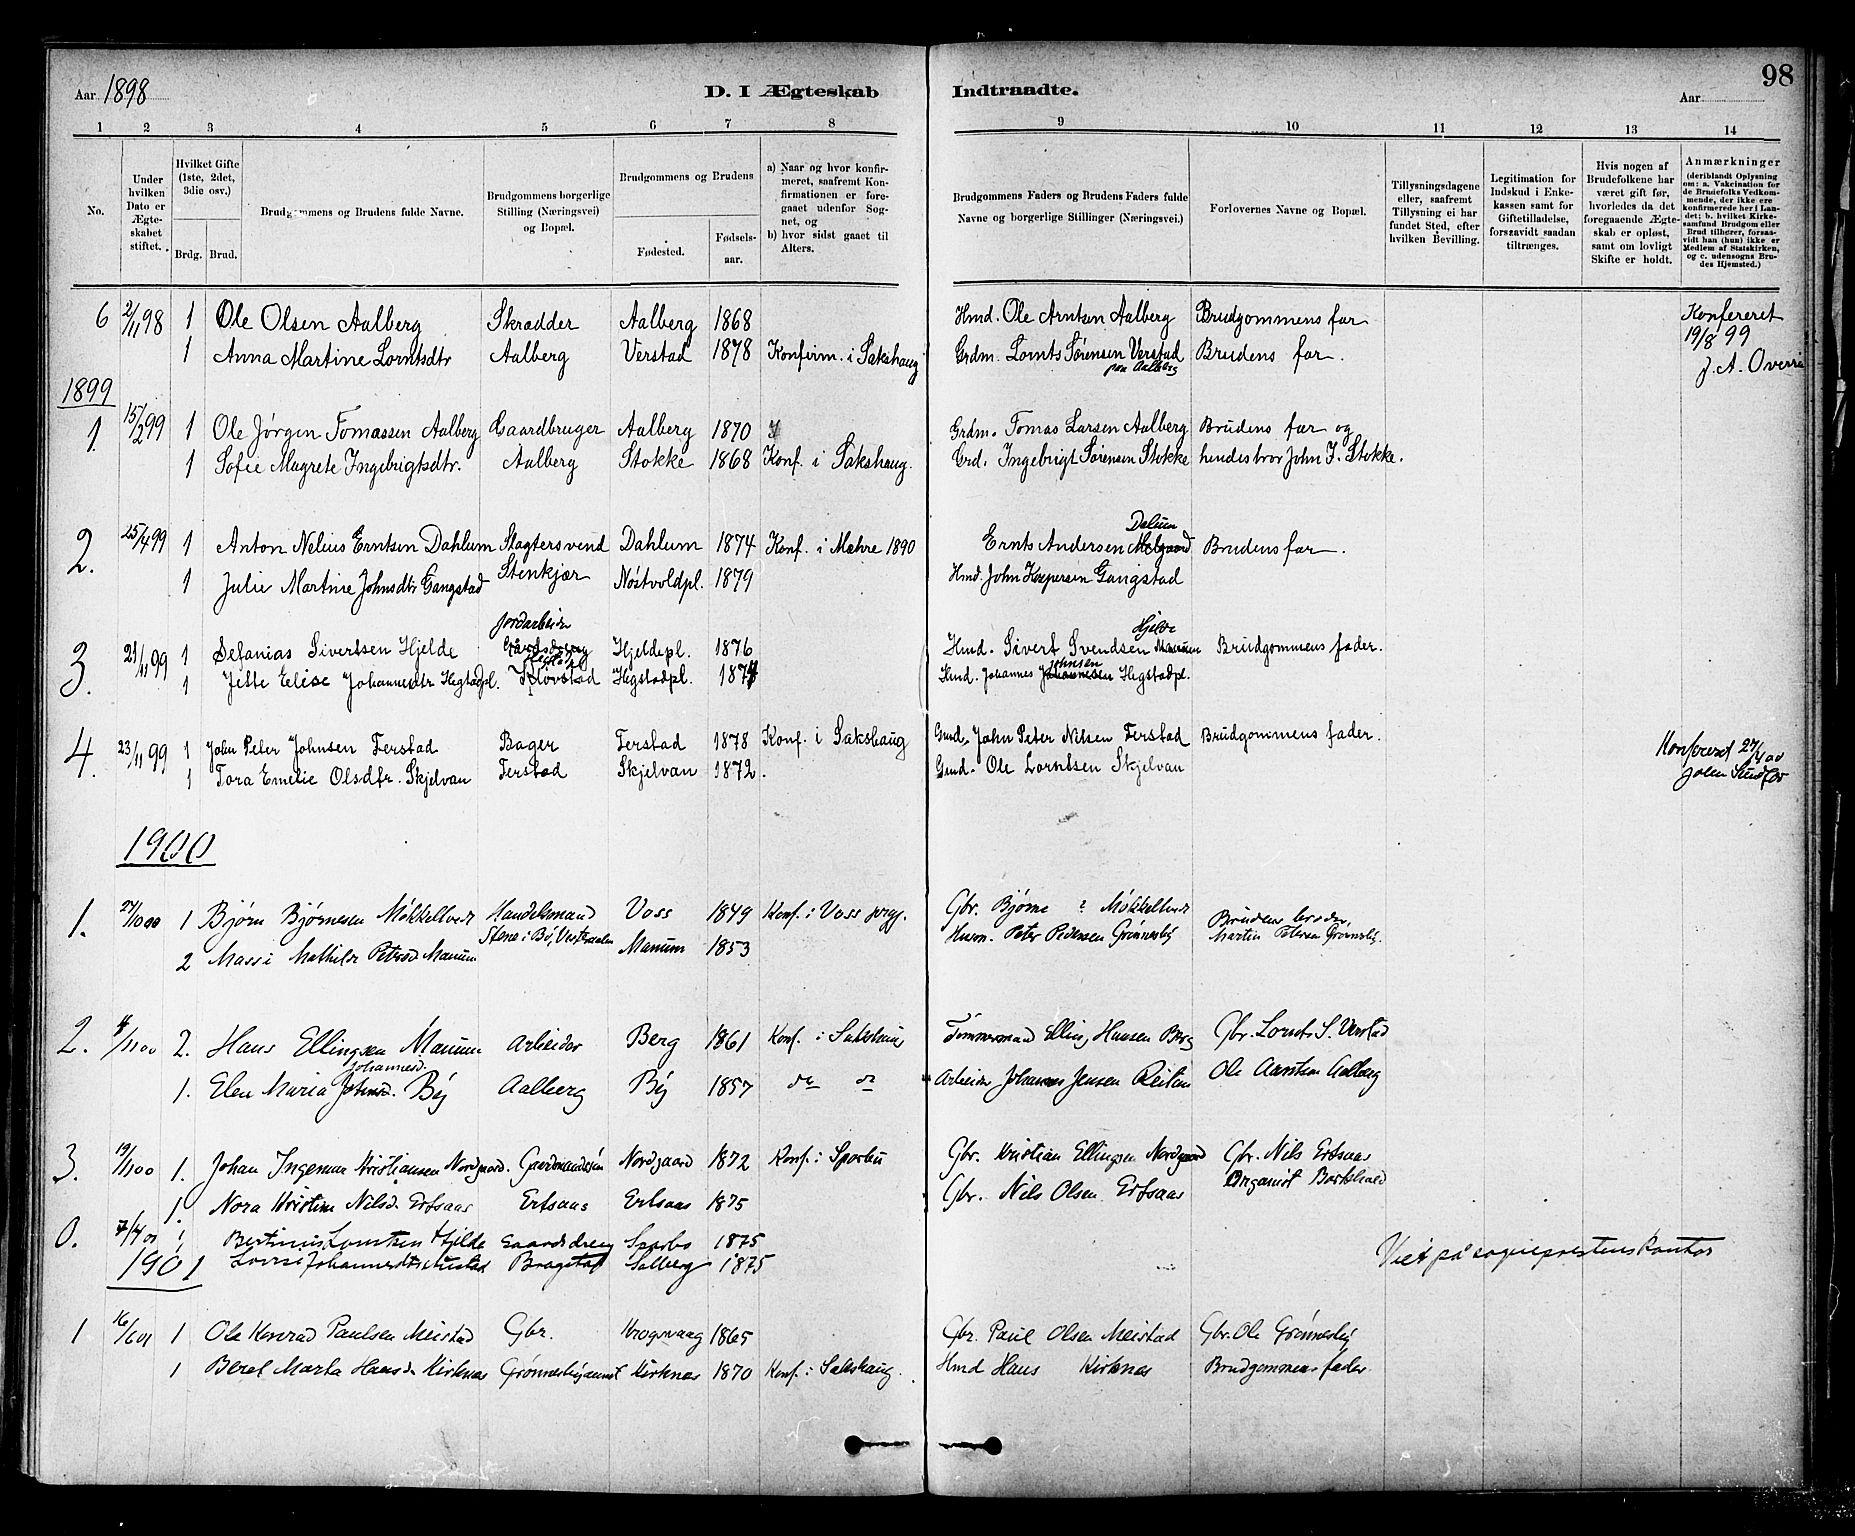 Aar 1898
D. I Ægteskab Indtraadte.
98
Aar
1 2 3 4 5 6 7 8 9 10 11 12 13 14
No.
Under hvilken Dato er Ægteskabet stiftet.
Hvilket Gifte (1ste, 2det, 3die osv.)
Brdg. Brud.
Brudgommens og Brudens fulde Navne.
Brudgommens borgerlige Stilling (Næringsvei) og Bopæl.
Brudgommens og Brudens
Fødested. Fødselsaar.
a) Naar og hvor konfirmeret, saafremt Konfirmationen er foregaaet udenfor Sognet, og
b) hvor sidst gaaet til Alters.
Brudgommens Faders og Brudens Faders fulde Navne og borgerlige Stillinger (Næringsvei.)
Forlovernes Navne og Bopæl.
Tillysningsdagene eller, saafremt Tillysning ei har fundet Sted, efter hvilken Bevilling.
Legitimation for Indskud i Enkekassen samt for Giftetilladelse, forsaavidt saadan tiltrænges.
Hvis nogen af Brudefolkene har været gift før, hvorledes da det foregaaende Ægteskab er opløst, samt om lovligt Skifte er holdt.
Anmærkninger (deriblandt Oplysning om: a. Vakcination for de Brudefolks Vedkommende, der ikke ere konfirmerede her i Landet; b. hvilket Kirkesamfund Brudgom eller Brud tilhører, forsaavidt han (hun) ikke er Medlem af Statskirken, og c. udensogns Brudes Hjemsted.)
6 2/11 98 1 Ole Olsen Aalberg Skrædder Aalberg 1868 Hmd. Ole Arntsen Aalberg Brudgommens far Konfereret
1 Anna Martine Lorntsdtr Aalberg Verstad 1878 Konfirm. i Sakshaug Grdm. Lornts Sørensen Verstad Brudens far. 19/8 99
paa Aalberg J. A. Overre
1899
1 15/2 99 1 Ole Jørgen Tomassen Aalberg Gaardbruger Aalberg 1870 Grdm. Tomas Larsen Aalberg Brudens far og
1 Sofie Magrete Ingebrigtsdtr. Aalberg Stokke 1868 Konf. i Sakshaug. Grd. Ingebrigt Sørensen Stokke hendes bror John I. Stokke.
2. 25/4 99 1 Anton Nelius Erntsen Dahlum Slagtersvend Dahlum 1874 Konf. i Mæhre 1890 Ernts Andersen Dalum Brudens far.
1 Julie Martine Johnsdtr Gangstad Stenkjær Nøstvoldpl. 1879 Hmd. John Kaspersen Gangstad
Jordarbeider Hjelde
3. 21/11 99 1 Sefanias Sivertsen Hjelde Hjeldepl. 1876 Hmd. Sivert Svendsen Manum Brudgommens fader.
1 Jitte Elise Johannesdtr Hegstadpl. Hegstadpl. 1871 Hmd. Johannes Johnsen Hegstadpl.
4. 23/11 99 1 John Peter Johnsen Ferstad Bager Ferstad 1878 Konf. i Sakshaug Gmd. John Peter Nilsen Ferstad Brudgommens fader. Konfereret 27/4 00
1 Tora Emelie Olsdtr. Skjelvan Ferstad Skjelvan 1872. Gmd. Ole Lorntsen Skjelvan
1900
1. 27/10 00 1 Bjørn Bjørnesen Møkkeltvedt Handelsmand Voss 1849 Konf. i Voss prgj. Gbr. Bjørne ? Møkkeltvedt Brudens broder,
2 Massi Mathilde Petersd. Manum Stene i Bø, Vesteraalen Manum 1853 Husm. Peter Pedersen Grønnesby Martin Petersen Grønnesby.
2. /11 00 2. Hans Ellingsen Manum Arbeider Berg 1861 Konf. i Sakshaug Tømmermand Elling Hansen Berg Gbr. Lornts S. Verstad
Johannesd.
1. Elen Maria Johnsd. By Aalberg By 1857 do do Arbeider Johannes Jensen Reitan Ole Arntsen Aalberg
3. 19/11 00 1. Johan Ingemar Kristiansen Nordgaard. Gaardmandssøn Nordgaard 1872 Konf. i Sparbu Gbr. Kristian Ellingsen Nordgaard Gbr. Nils Ertsaas
1. Nora Kristine Nilsd. Ertsaas Ertsaas Ertsaas 1875 Gbr. Nils Olsen Ertsaas
0. 7/4 01 1 Bertinius Lorntsen Hjelde Gaardsdreng Sparbu 1875
1901
Lovise Johannesdtr Salberg 1875 Viet på sogneprestens kontor
1 16/6 01 1 Ole Konrad Paulsen Meistad Gbr. Krogsvaag 1865 Gbr. Paul Olsen Meistad Gbr. Ole Grønnesby
1 Beret Marta Hansd. Kirknæs Kirknæs 1870 Konf. i Sakshaug. Hmd Hans Kirknæs Brudgommens fader